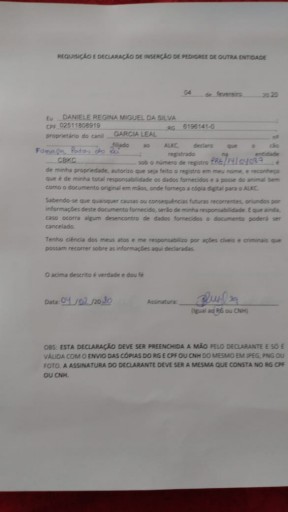 REQUISIÇÃO E DECLARAÇÃO DE INSERÇÃO DE PEDIGREE DE OUTRA ENTIDADE
04 de fevereiro 20 20
Eu DANIELE REGINA MIQUEL DA SILVA
CPF 02511808919 RG 6196141-0
proprietário do canil GARCIA LEAL nº
filiado ao ALKC, declaro que o cão
registrado na entidade
CBKC sob o número de registro e
de minha propriedade, autorizo que seja feito o registro em meu nome, e reconheço
que é de minha total responsabilidade os dados fornecidos e a posse do animal bem
como o documento original em mãos, onde forneço a cópia digital para o ALKC.
Sabendo-se que quaisquer causas ou consequências futuras recorrentes, oriundos por
informações deste documento fornecido, serão de minha responsabilidade. E que ainda,
caso ocorra algum desencontro de dados fornecidos o documento poderá ser
cancelado.
Tenho ciência dos meus atos e me responsabilizo por ações cíveis e criminais que
possam recorrer sobre as informações aqui declaradas.
O acima descrito é verdade e dou fé
Data: 04 / 02 /2020 Assinatura:
(igual ao RG ou CNH)
OBS: ESTA DECLARAÇÃO DEVE SER PREENCHIDA A MÃO PELO DECLARANTE E SÓ É
VÁLIDA COM O ENVIO DAS CÓPIAS DO RG E CPF OU CNH DO MESMO EM JPEG, PNG OU
FOTO. A ASSINATURA DO DECLARANTE DEVE SER A MESMA QUE CONSTA NO RG CPF
OU CNH.